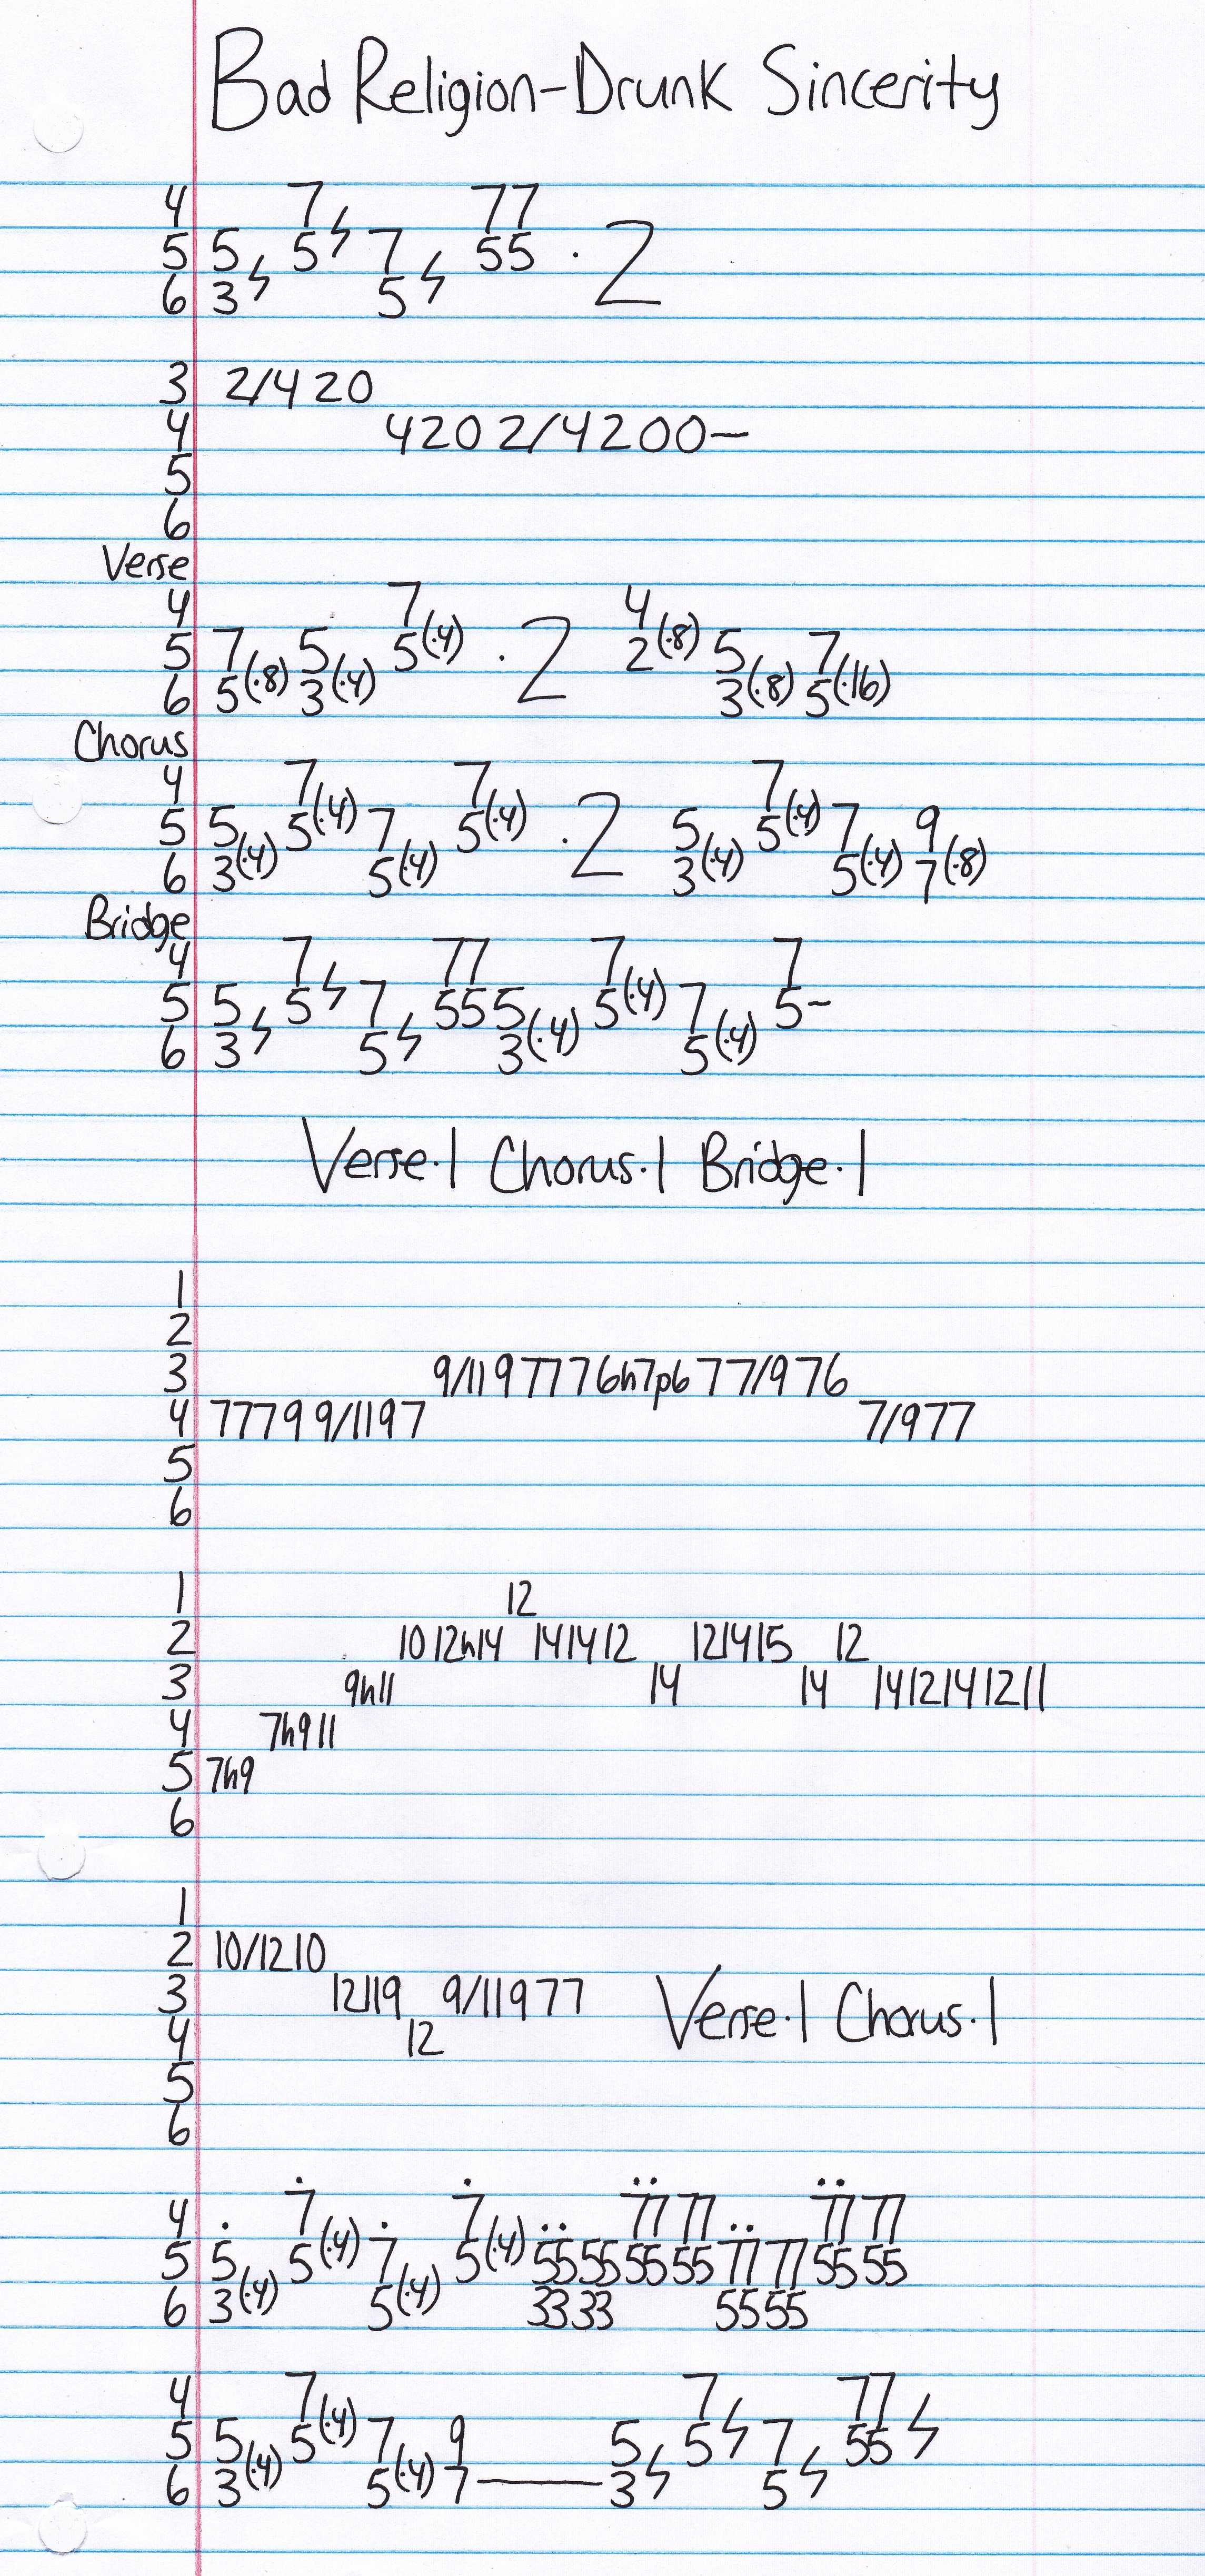 Bad Religion-Drunk Sincerity
4 7ϟ 77
5 5ϟ 5 7ϟ 55 · 2
6 3 5
3 2/4 2 0
4 4 2 0 2/4 2 0 0—
5
6
Verse
4 7 4
5 7 5 5(·4) · 2 2(·8) 5 7
6 5(·8) 3(·4) 3(·8) 5(·16)
Chorus
4 7 7 7
5 5 5(·4) 7 5(·4) · 2 5 5(·4) 7 9
6 3(·4) 5(·4) 3(·4) 5(·4) 7(·8)
Bridge
4 7ϟ 77 7 7
5 5ϟ 5 7ϟ 55 5 5(·4) 7 5~
6 3 5 3(·4) 5(·4)
Verse·1 Chorus·1 Bridge·1
1
2
3 9/11 9 7 7 7 6h7p6 7 7/9 7 6
4 7 7 7 9 9/11 9 7 7/9 7 7
5
6
1 12
2 10 12h14 14 14 12 12 14 15 12
3 9h11 14 14 14 12 14 12 11
4 7h9 11
5 7h9
6
1
2 10/12 10
3 12 11 9 9/11 9 7 7 Verse·1 Chorus·1
4 12
5
6
4 7 7 77 77 77 77
5 5 5(·4) 7 5(·4) 55 55 55 55 77 77 55 55
6 3(·4) 5(·4) 33 33 55 55
4 7 7ϟ 77ϟ
5 5 5(·4) 7 9 5ϟ 5 7ϟ 55
6 3(·4) 5(·4) 7—— 3 5